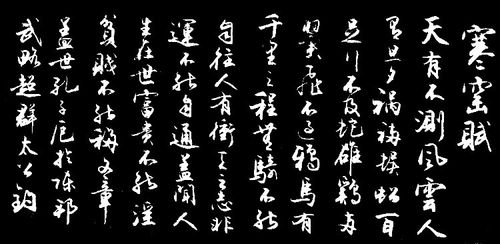 寒窑賦
天有不測風雲人
有旦夕禍福蜈蚣百
足行不及蛇雄鷄兩
翼飛不過鴉馬有
千里之程無騎不能
自往人有衝天之志非
運不能自通蓋聞人
生在世富貴不能淫
貧賤不能移文章
蓋世孔子厄於陳邦
武略超群太公釣